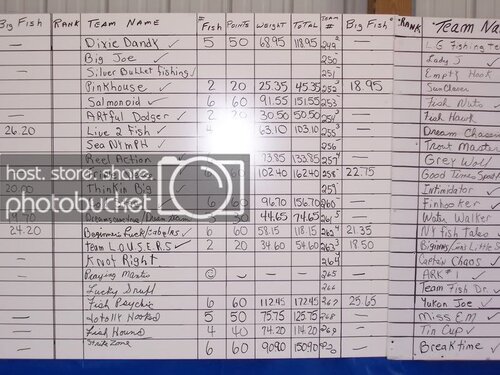 Big Fish RANK TEAM NAME # Fish POINTS WEIGHT TOTAL TEAM # BIG FISH RANK Team Na
— Dixie Dandy ✓ 5 50 68.95 118.95 249 — LG Fishing Te
Big Joe ✓ 250 Lady J ✓
Silver Bullet fishing ✓ 251 Empty Hook
Pinkhouse ✓ 2 20 25.35 45.35 252 18.95 Sun Chaser
— Salmonoid ✓ 6 60 91.55 151.55 253 — Fish Nuts ✓
— ARtful Dodger ✓ 2 20 30.50 50.50 254 — Fish Hawk
26.20 Live 2 Fish ✓ 4 63.10 103.10 255 — Dream Chaser
Sea NYMPH ✓ 256 Trout Master
Reel Action ✓ 73.85 133.85 257 — Grey Wolf
6 60 102.40 162.40 258 22.75 Good Times
Thinkin Big 259 Intimidator ✓
96.70 156.70 260 — Finhooker ✓
44.65 74.65 261 — Water Walker
24.20 Beginners Luck 6 60 58.15 118.15 262 21.35 NY fish Tales ✓
— Team L.O.U.S.E.R.S ✓ 2 20 34.60 54.60 263 18.50
— Knot Right 264 Captain Chaos ✓
— Praying Mantis — 265 — ARK #1 ✓
Lucky Druff 266 Team Fish Dr ✓
Fish Psychic 6 60 112.45 172.45 267 25.65 Yukon Joe ✓
— Totally Hooked 5 50 75.75 125.75 268 — Miss EM ✓
— Fish Hound 4 40 74.20 114.20 269 — Tin Cup ✓
— Strike Zone 6 60 90.90 150.90 — Breaktime ✓
host. store. share.
photobucket